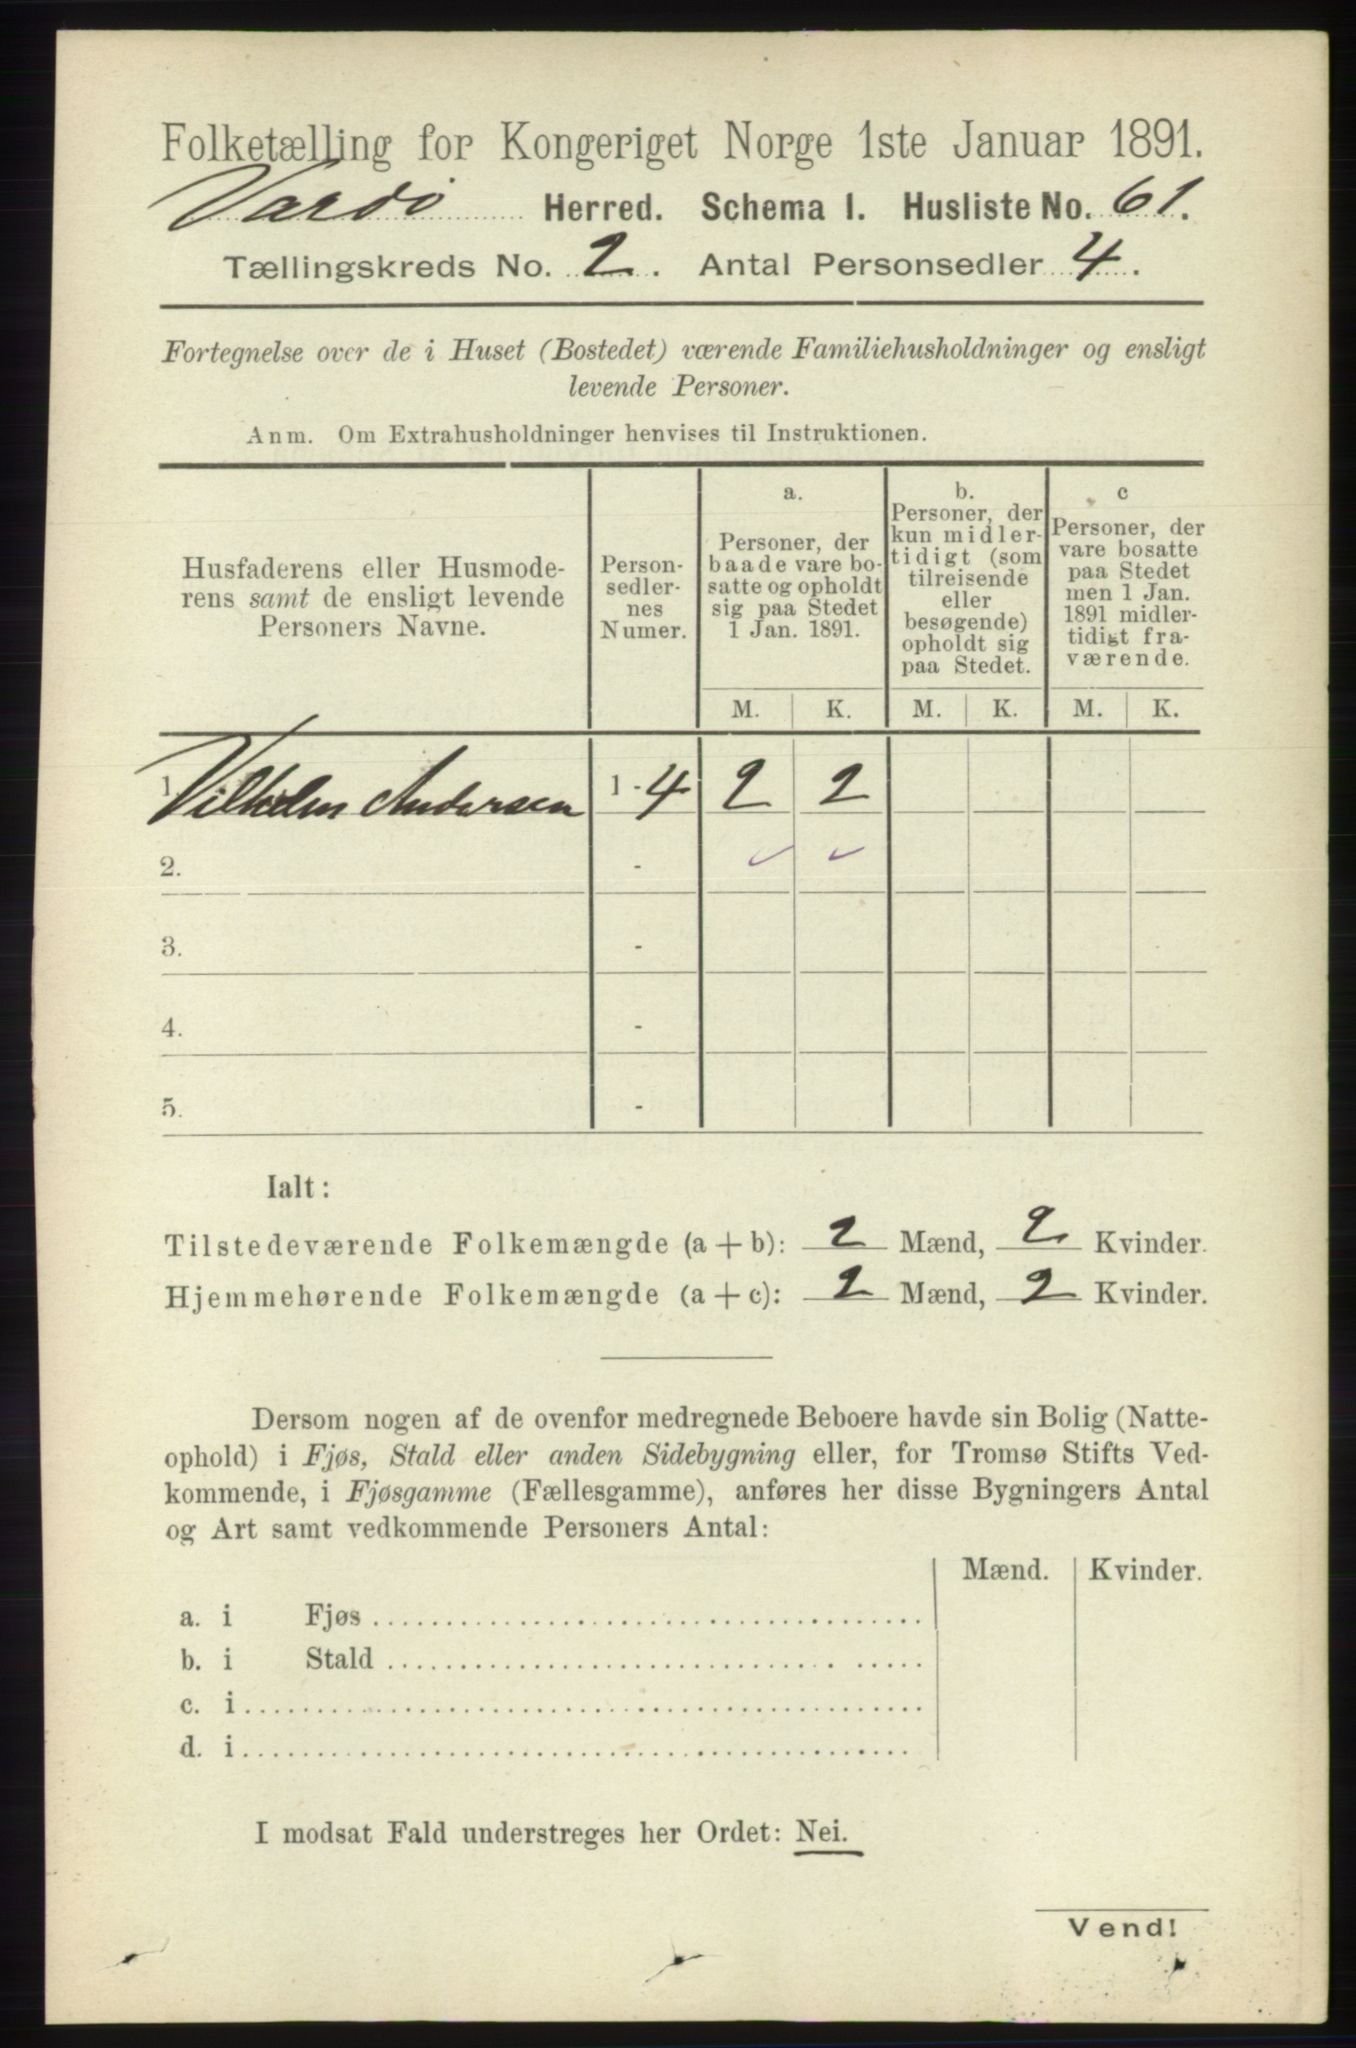 Folketælling for Kongeriget Norge 1ste Januar 1891.
Vardö Herred. Schema I. Husliste No. 61.
Tællingskreds No. 2. Antal Personsedler 4.
Fortegnelse over de i Huset (Bostedet) værende Familiehusholdninger og ensligt
levende Personer.
Anm. Om Extrahusholdninger henvises til Instruktionen.
Husfaderens eller Husmode-
rens samt de ensligt levende
Personers Navne.
Person-
sedler-
nes
Numer.
a.
Personer, der
baade vare bo-
satte og opholdt
sig paa Stedet
1 Jan. 1891.
b.
Personer, der
kun midler-
tidigt (som
tilreisende
eller
besøgende)
opholdt sig
paa Stedet.
c
Personer, der
vare bosatte
paa Stedet
men 1 Jan.
1891 midler-
tidigt fra-
værende.
M. K. M. K. M. K.
1 Vilhelm Andersen 1-4 2 2
2. -
3. -
4. -
5. -
Ialt:
Tilstedeværende Folkemængde (a + b): 2 Mænd, 2 Kvinder.
Hjemmehørende Folkemængde (a + c): 2 Mænd, 2 Kvinder.
Dersom nogen af de ovenfor medregnede Beboere havde sin Bolig (Natte-
ophold) i Fjøs, Stald eller anden Sidebygning eller, for Tromsø Stifts Ved-
kommende, i Fjøsgamme (Fællesgamme), anføres her disse Bygningers Antal
og Art samt vedkommende Personers Antal:
Mænd. Kvinder.
a. i Fjøs
b. i Stald
c. i
d. i
I modsat Fald understreges her Ordet: Nei.
Vend!